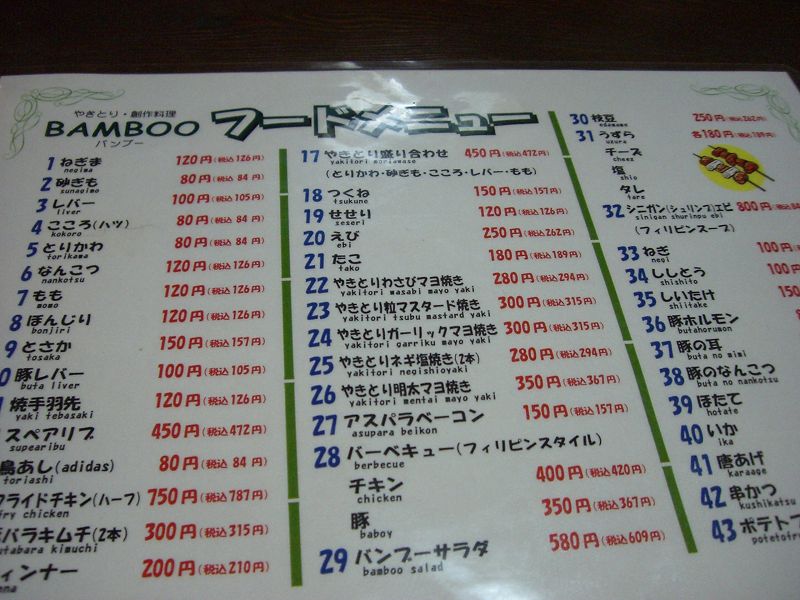 やきとり・創作料理
BAMBOO フードメニュー
バンブー
1 ねぎま 120円(税込126円)
negima
2 砂ぎも 80円(税込 84 円)
sunagimo
3 レバー 100円(税込105円)
liver
4 こころ(ハツ) 80円(税込 84 円)
kokoro
5 とりかわ 80円(税込 84 円)
torikawa
6 なんこつ 120円(税込126円)
nankotsu
7 もも 120円(税込126円)
momo
8 ぼんじり 120円(税込126円)
bonjiri
9 とさか 150円(税込157円)
tosaka
0 豚レバー 100円(税込105円)
buta liver
焼手羽先 120円(税込126円)
yaki tebasaki
スペアリブ 450円(税込472円)
supearibu
鳥あし(adidas) 80円(税込 84 円)
toriashi
フライドチキン(ハーフ) 750円(税込787円)
fry chicken
バラキムチ(2本) 300円(税込315円)
utabara kimuchi
ィンナー 200円(税込210円)
17 やきとり盛り合わせ 450円(税込472円)
yakitori moriawase
(とりかわ・砂ぎも・こころ・レバー・もも)
18 つくね 150円(税込157円)
tsukune
19 せせり 120円(税込126円)
seseri
20 えび 250円(税込262円)
ebi
21 たこ 180円(税込189円)
tako
22 やきとりわさびマヨ焼き 280円(税込294円)
yakitori wasabi mayo yaki
23 やきとり粒マスタード焼き 300円(税込315円)
yakitori tsubu mastard yaki
24 やきとりガーリックマヨ焼き 300円(税込315円)
yakitori garriku mayo yaki
25 やきとりネギ塩焼き(2本) 280円(税込294円)
yakitori negishioyaki
26 やきとり明太マヨ焼き 350円(税込367円)
yakitori mentai mayo yaki
27 アスパラベーコン 150円(税込157円)
asupara beikon
28 バーベキュー(フィリピンスタイル)
berbecue
チキン 400円(税込420円)
chicken
豚 350円(税込367円)
baboy
29 バンブーサラダ 580円(税込609円)
bamboo salad
30 枝豆 250円(税込262円)
edamame
31 うずら 各180円(税込189円)
uzura
チーズ
cheez
塩
shio
タレ
tare
32 シニガン(シュリンプ)エビ 800円(税込84
sinigan shurinpu ebi
(フィリピンスープ)
33 ねぎ 100円(
negi
34 ししとう 100円
shishito
35 しいたけ 150
shiitake
36 豚ホルモン
butahorumon
37 豚の耳
buta no mimi
38 豚のなんこつ
buta no nankotsu
39 ほたて
hotate
40 いか
ika
41 唐あげ
karaage
42 串かつ
kushikatsu
43 ポテトフ
potetofry